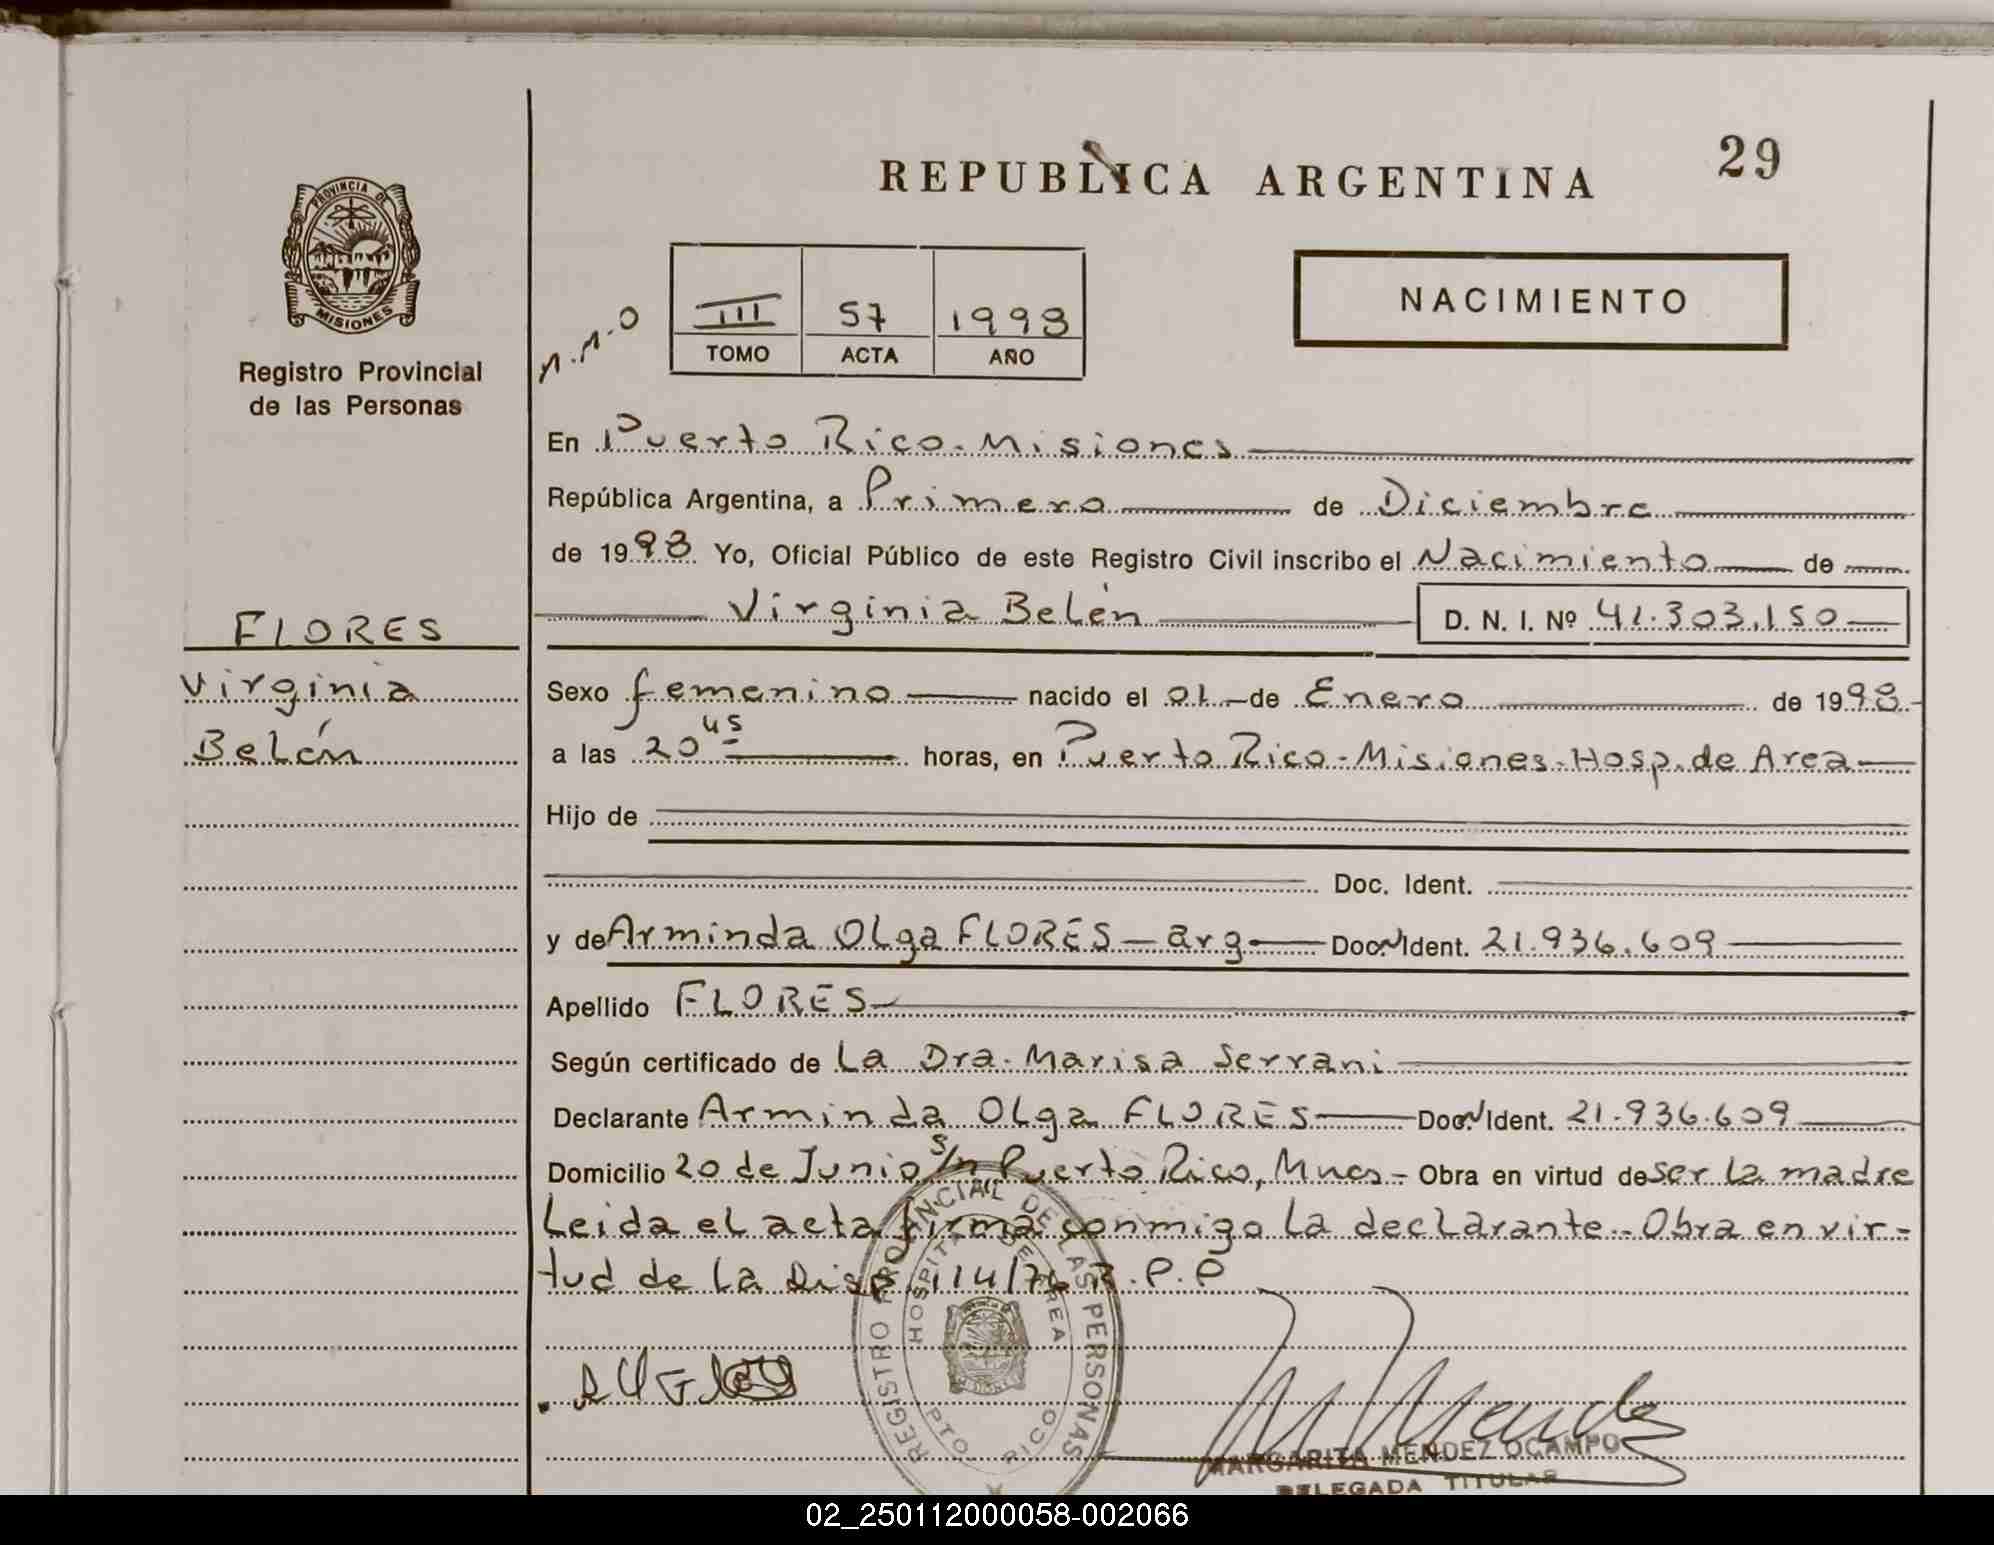 29
REPUBLICA ARGENTINA
PROVINCIA DE
MISIONES
Registro Provincial
de las Personas
n.n.o
III 57 1998
TOMO ACTA AÑO
NACIMIENTO
En Puerto Rico-Misiones
República Argentina, a Primero de Diciembre
de 1998 Yo, Oficial Público de este Registro Civil inscribo el Nacimiento de
Virginia Belén D. N. I. Nº 41.303.150
FLORES
Virginia
Belén
Sexo femenino nacido el 01 de Enero de 1998
a las 20 45 horas, en Puerto Rico-Misiones-Hosp. de Area
Hijo de
Doc. Ident.
y de Arminda Olga FLORES - arg Doc. Ident. 21.936.609
Apellido FLORES
Según certificado de La Dra. Marisa Serrani
Declarante Arminda Olga FLORES Doc. Ident. 21.936.609
Domicilio 20 de Junio s/n Puerto Rico, Mnes- Obra en virtud de ser la madre
Leida el acta firma conmigo la declarante.- Obra en vir-
tud de la Disp. 114/74 R.P.P
REGISTRO PROVINCIAL DE LAS PERSONAS
HOSPITAL DE AREA
PTO. RICO
MARGARITA MENDEZ OCAMPO
DELEGADA TITULAR
02_250112000058-002066